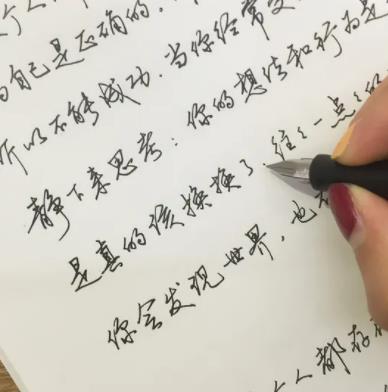 自己是正确的.
所以不能成功.当你经常
静下来思考:你的想法和行为是
是真的该换换了.往往一点点的
你会发现世界,也
都存